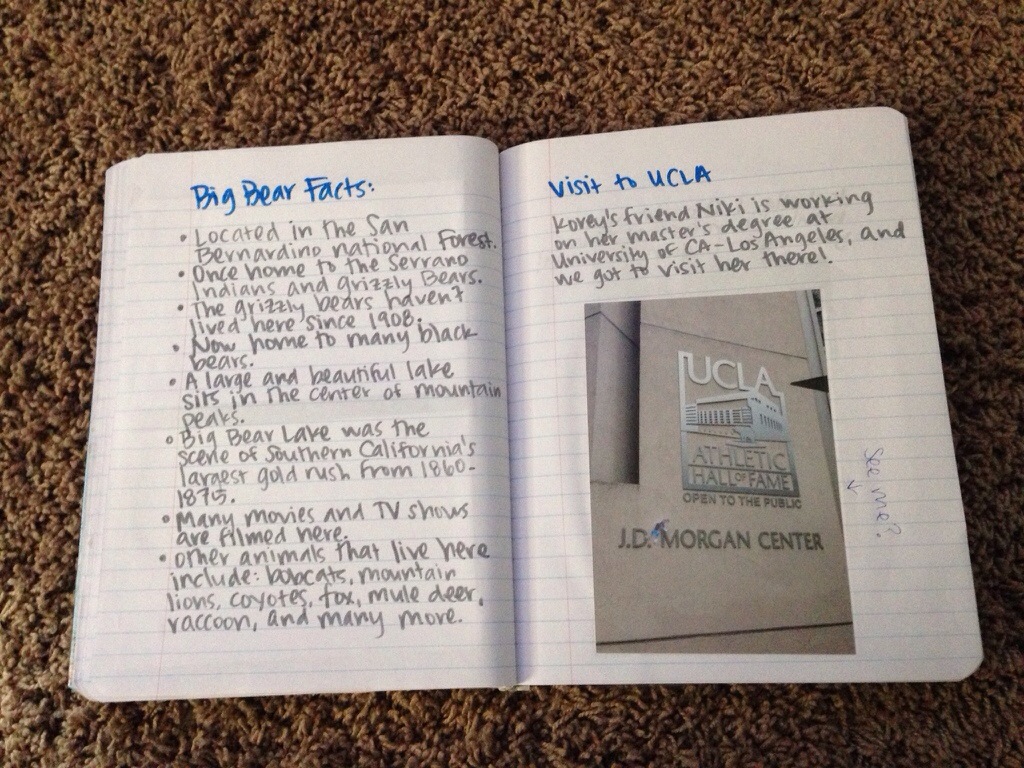 Big Bear Facts:
• Located in the San
Bernardino national Forest.
• Once home to the Serrano
Indians and grizzly Bears.
• The grizzly bears haven't
lived here since 1908.
• Now home to many black
bears.
• A large and beautiful lake
sits in the center of mountain
peaks.
• Big Bear Lake was the
scene of Southern California's
largest gold rush from 1860-
1875.
• Many movies and TV shows
are filmed here.
• other animals that live here
include: bobcats, mountain
lions, coyotes, fox, mule deer,
raccoon, and many more.
Visit to UCLA
Korey's friend Niki is working
on her master's degree at
University of CA-Los Angeles, and
we got to visit her there!
UCLA
ATHLETIC
HALL OF FAME
OPEN TO THE PUBLIC
J.D. MORGAN CENTER
See me?